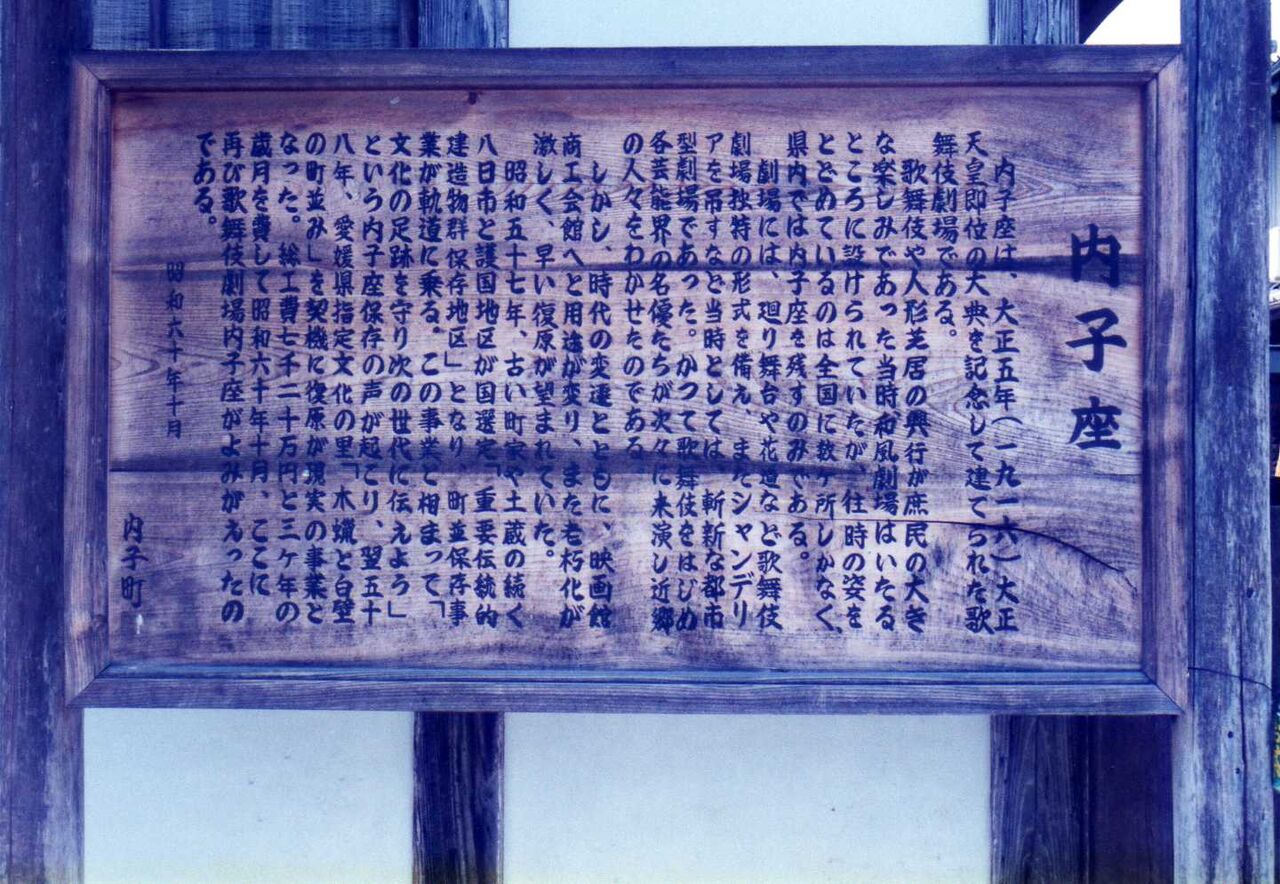 内子座
内子座は、大正五年（一九一六）大正
天皇即位の大典を記念して建てられた歌
舞伎劇場である。
歌舞伎や人形芝居の興行が庶民の大き
な楽しみであった当時、和風劇場はいたる
ところに設けられていたが、往時の姿を
とどめているのは全国に数ヶ所しかなく、
県内では内子座を残すのみである。
劇場には、廻り舞台や花道など歌舞伎
劇場独特の形式を備え、またシャンデリ
アを吊すなど当時としては、斬新な都市
型劇場であった。かつて歌舞伎をはじめ
各芸能界の名優たちが次々に来演し近郷
の人々をわかせたのである。
しかし、時代の変遷とともに、映画館
商工会館へと用途が変り、また老朽化が
激しく、早い復原が望まれていた。
昭和五十七年、古い町家や土蔵の続く
八日市と護国地区が国選定「重要伝統的
建造物群保存地区」となり、町並保存事
業が軌道に乗る。この事業と相まって「
文化の足跡を守り次の世代に伝えよう」
という内子座保存の声が起こり、翌五十
八年、愛媛県指定文化の里「木蝋と白壁
の町並み」を契機に復原が現実の事業と
なった。総工費七千二十万円と三ヶ年の
歳月を費して昭和六十年十月、ここに
再び歌舞伎劇場内子座がよみがえったの
である。
昭和六十年十月
内子町